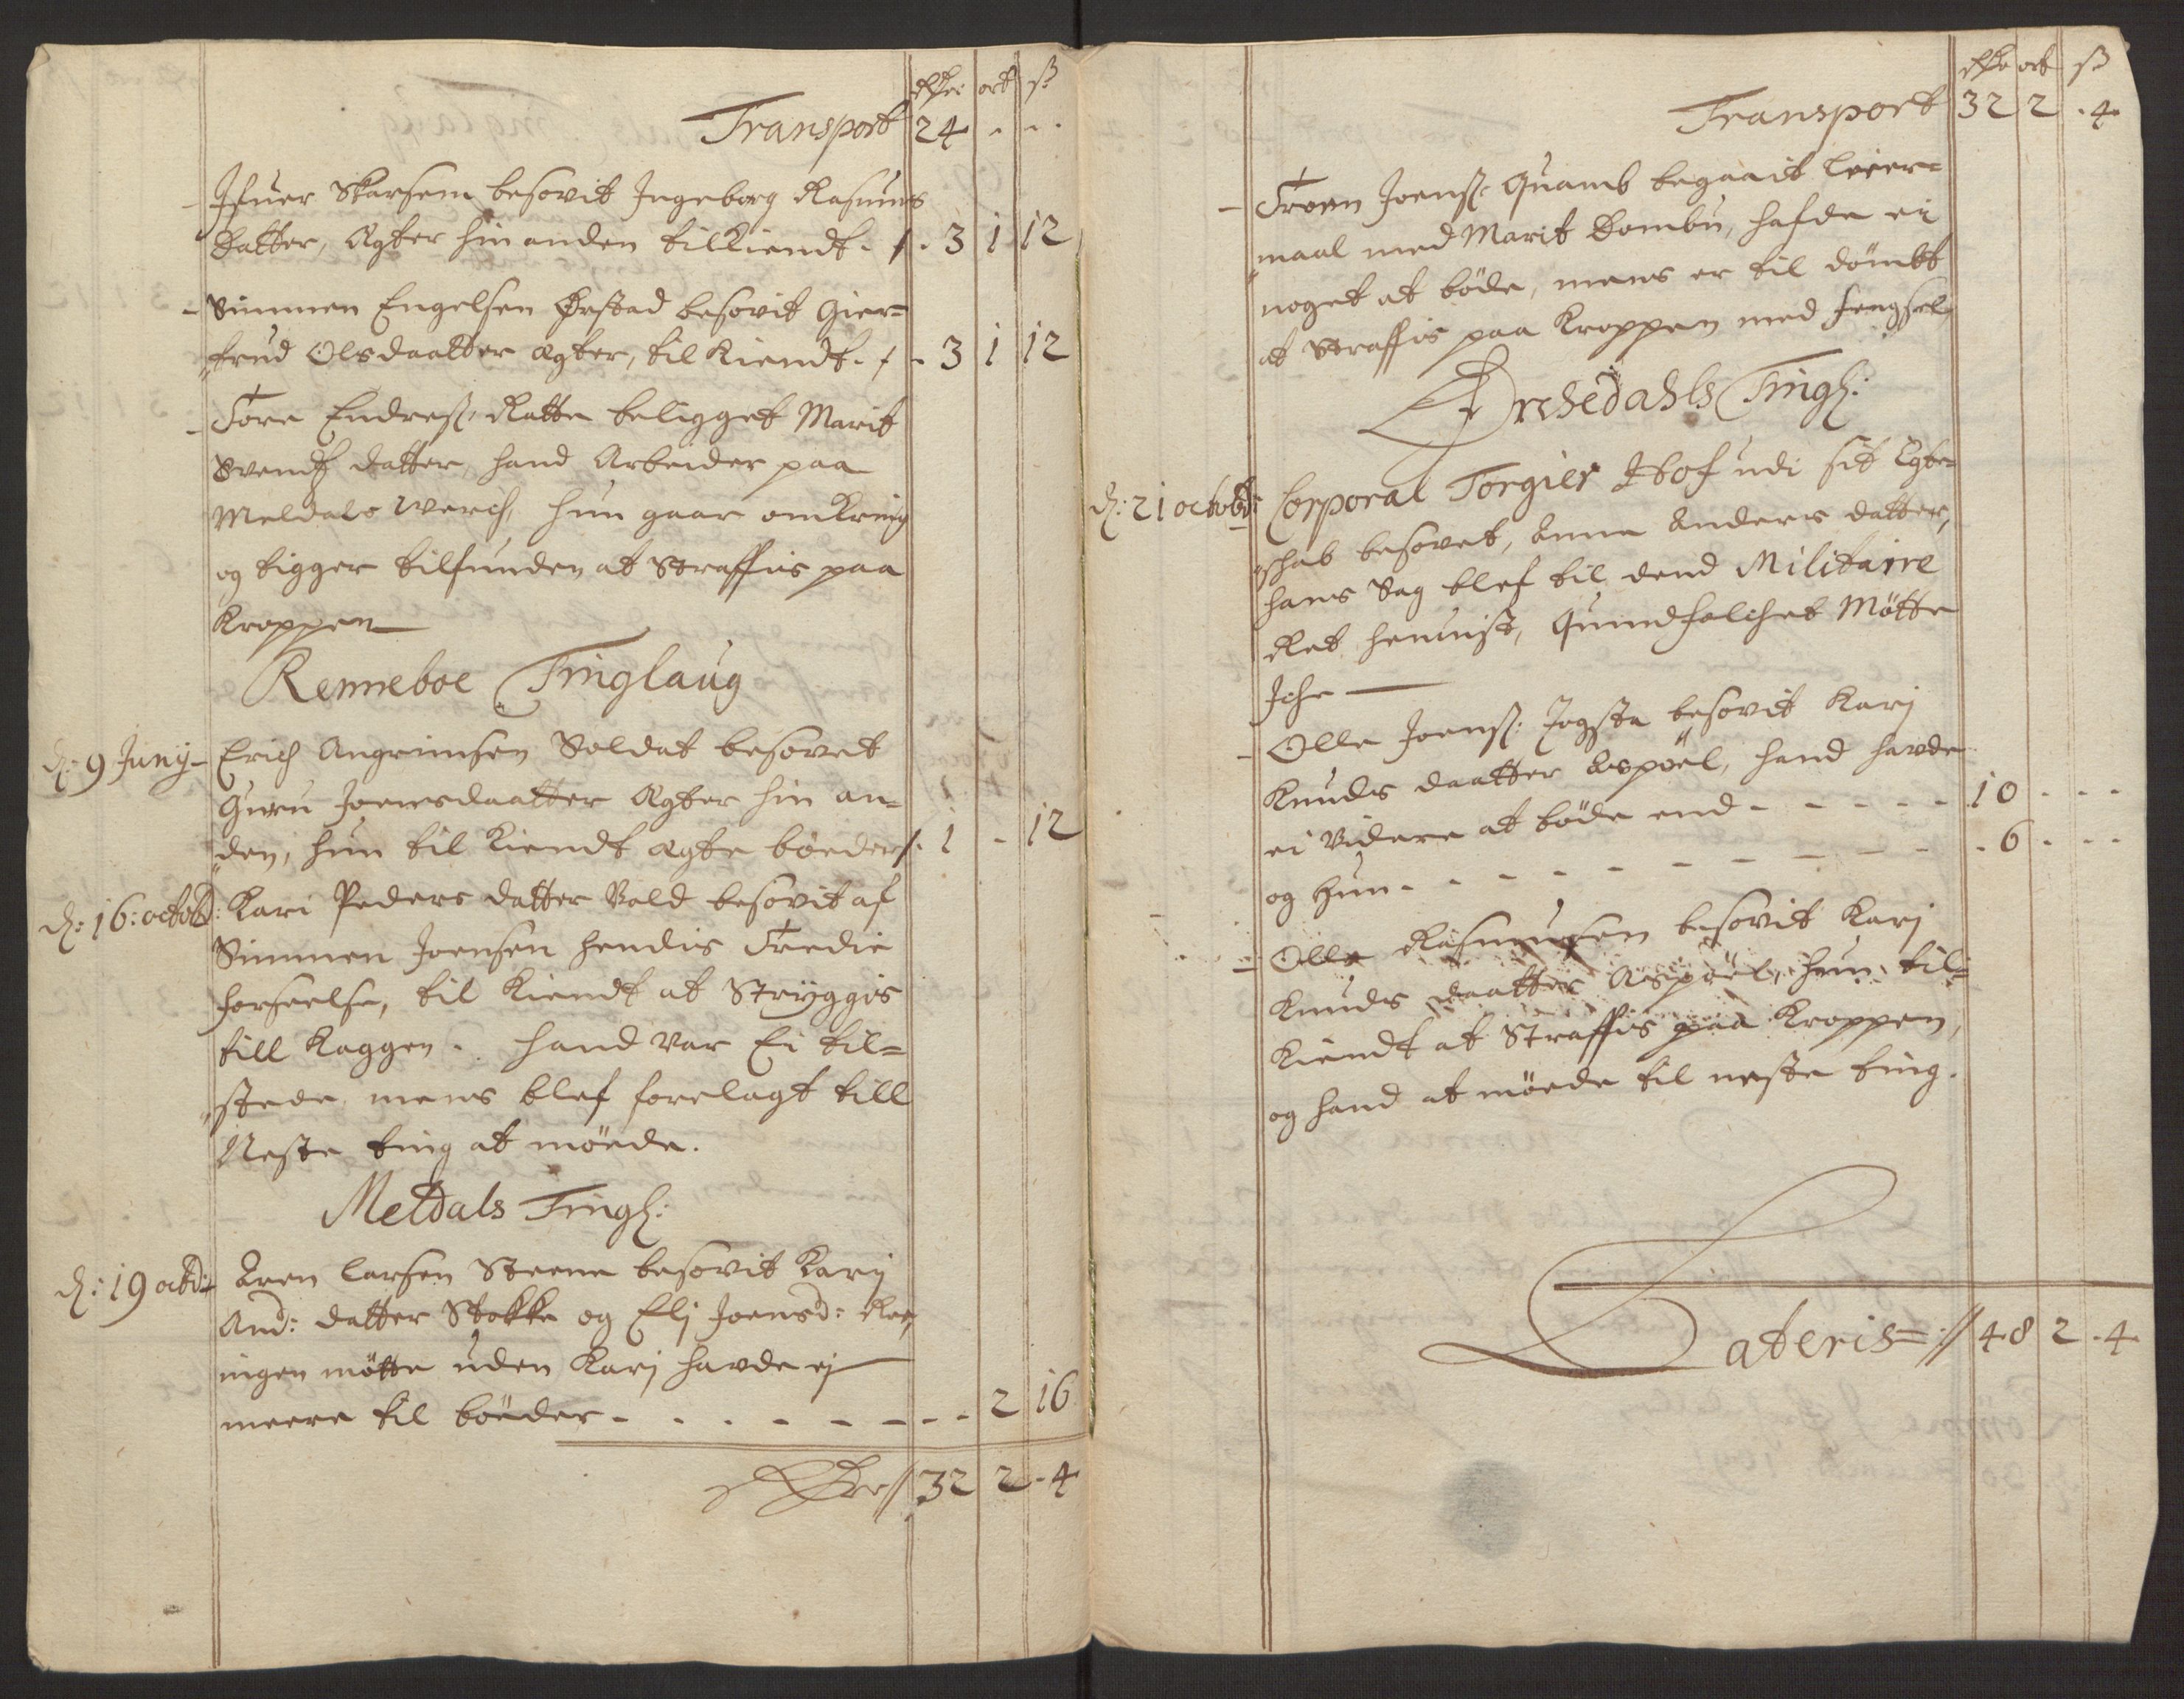 Rdr ort ß
Transport 24 - - -
Ifuer Skarsem besovit Ingeborg Rasmus
datter, Agter hin anden tilkiendt - 3 1 12
Simmen Engelsen Ørstad besovit Gier=
trud Olsdaatter Agter, til Kiendt - 3 1 12
Tore Endreß: Ratte beligget Marit
Svendß datter, hand Arbeider paa
Meldals werch, hun gaar omkring
og tigger tilfunden at Straffis paa
Kroppen
Renneboe Tinglaug
d: 9 Junij - Erich Angrimsen Soldat besovet
Guru Joensdaatter Agter hin an=
den, hun til Kiendt Agte bøeder 1 - 12
d: 16: octobr: Kari Peders datter Vold besovit af
Simmen Joensen hendis Tredie
forseelse, til Kiendt at Stryggis
till Kaggen. hand var Ei til=
stede mens blef forelagt till
Neste ting at møede.
Meldals Tingl:
d: 19 octbr: Aren Larsen Steene besovit Karij
And: datter Stokke og Elj Joensd: Roe,
ingen møtte uden Karj havde ej
meere til bøeder - - - - - - - - 2 16
Rdr // 32 2 - 4
Rdr ort ß
Transport 32 2 - 4
- Troen Joenß: Quamb begaait leier=
maal med Marit Dombu, hafde ei
noget at bøde, mens er til dømbt
at Straffis paa Kroppen med fengsel
Orchedahls Tingl:
d: 21 octobr: Corporal Torgier Hof udi sit Egte=
schab besovet, Anna Anders datter,
hans Sag blef til dend Militaire
Ret henvist, Quindfolchet Møtte
Iche
- Olle Joenß: Jogsta besovit Karj
Knuds daatter Aspøel, hand havde
ei Videre at bøde end - - - - - 10 - - -
og hun - - - - - - - - - 6 - - -
- Olle Rasmusen besovit Karj
Knuds daatter Aspøel, hun til=
Kiendt at Straffis paa Kroppen,
og hand at møede til neste ting.
Lateris = // 48 2 - 4